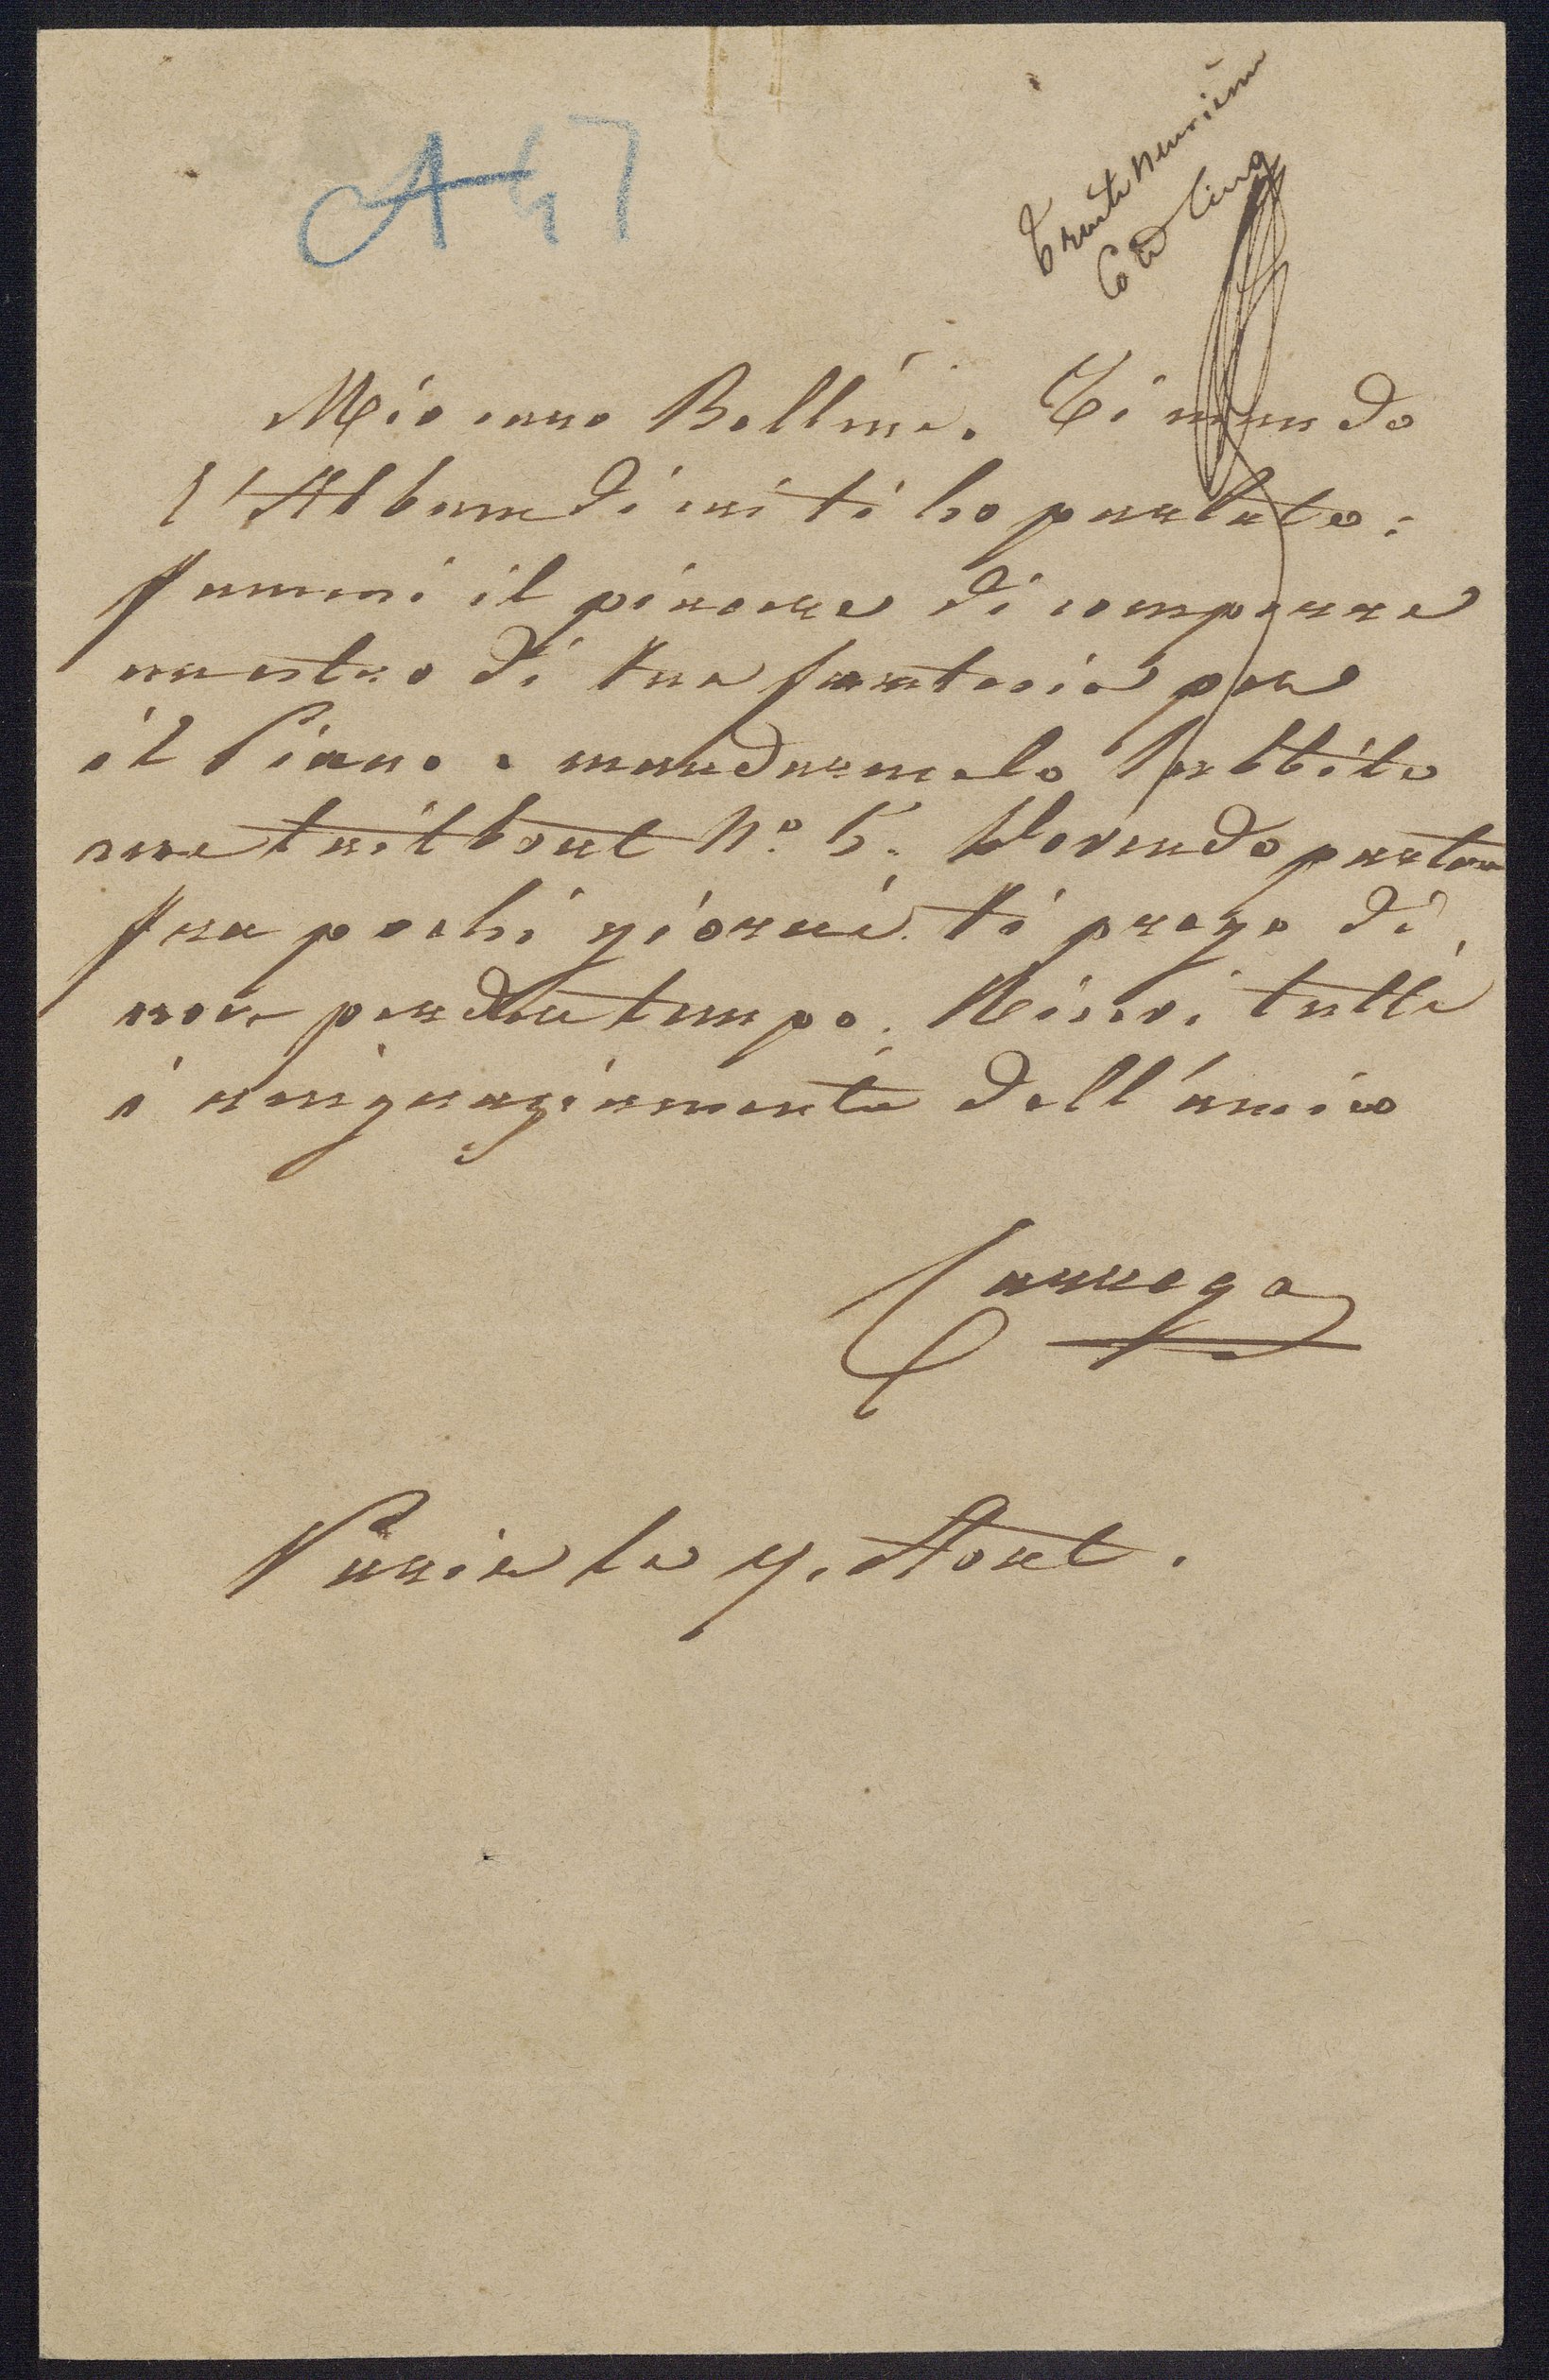 A 47
Trente neuvième
Cote Cinq
Mio caro Bellini. Ti mando
l'Album di cui ti ho parlato:
fammi il piacere di comporre
qualche di tua fantasia per
il Piano e mandarmelo subbito
rue taitbout N.º 5. Dovendo partire
fra pochi giorni ti prego di
non perdere tempo. Ricevi tutti
i ringraziamenti dell'amico
Carrega
Paris le 4. Aout.